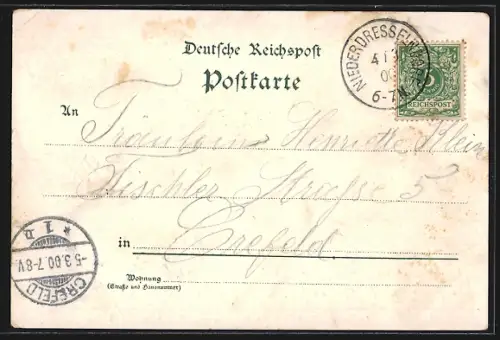 Deutsche Reichspost
Postkarte
NIEDERDRESSELN
4 1 3
00
6-7N
REICHSPOST
An
Fräulein Henriette Klein
Fischler Strasse 5
in Crefeld
Wohnung
(Straße und Hausnummer)
* 1 b
-5.3.00.7-8V.
CREFELD